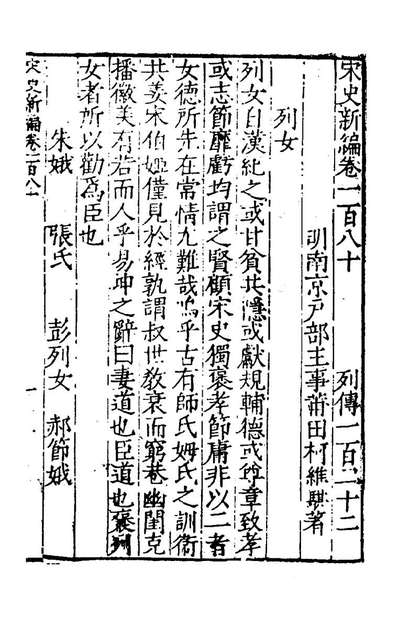 宋史新編卷一百八十　列傳一百二十二
明南京戶部主事莆田柯維騏著
列女
列女自漢紀之或甘貧共隱或獻規輔德或尊章致孝
或志節靡虧均謂之賢顧宋史獨褒孝節庸非以二者
女德所先在常情尤難哉嗚乎古有師氏姆氏之訓衛
共姜宋伯姬僅見於經孰謂叔世敎衰而窮巷幽閨克
播徽美有若而人乎易坤之辭曰妻道也臣道也褒列
女者所以勸為臣也
朱娥　張氏　彭列女　郝節娥
宋史新編卷一百八十
一